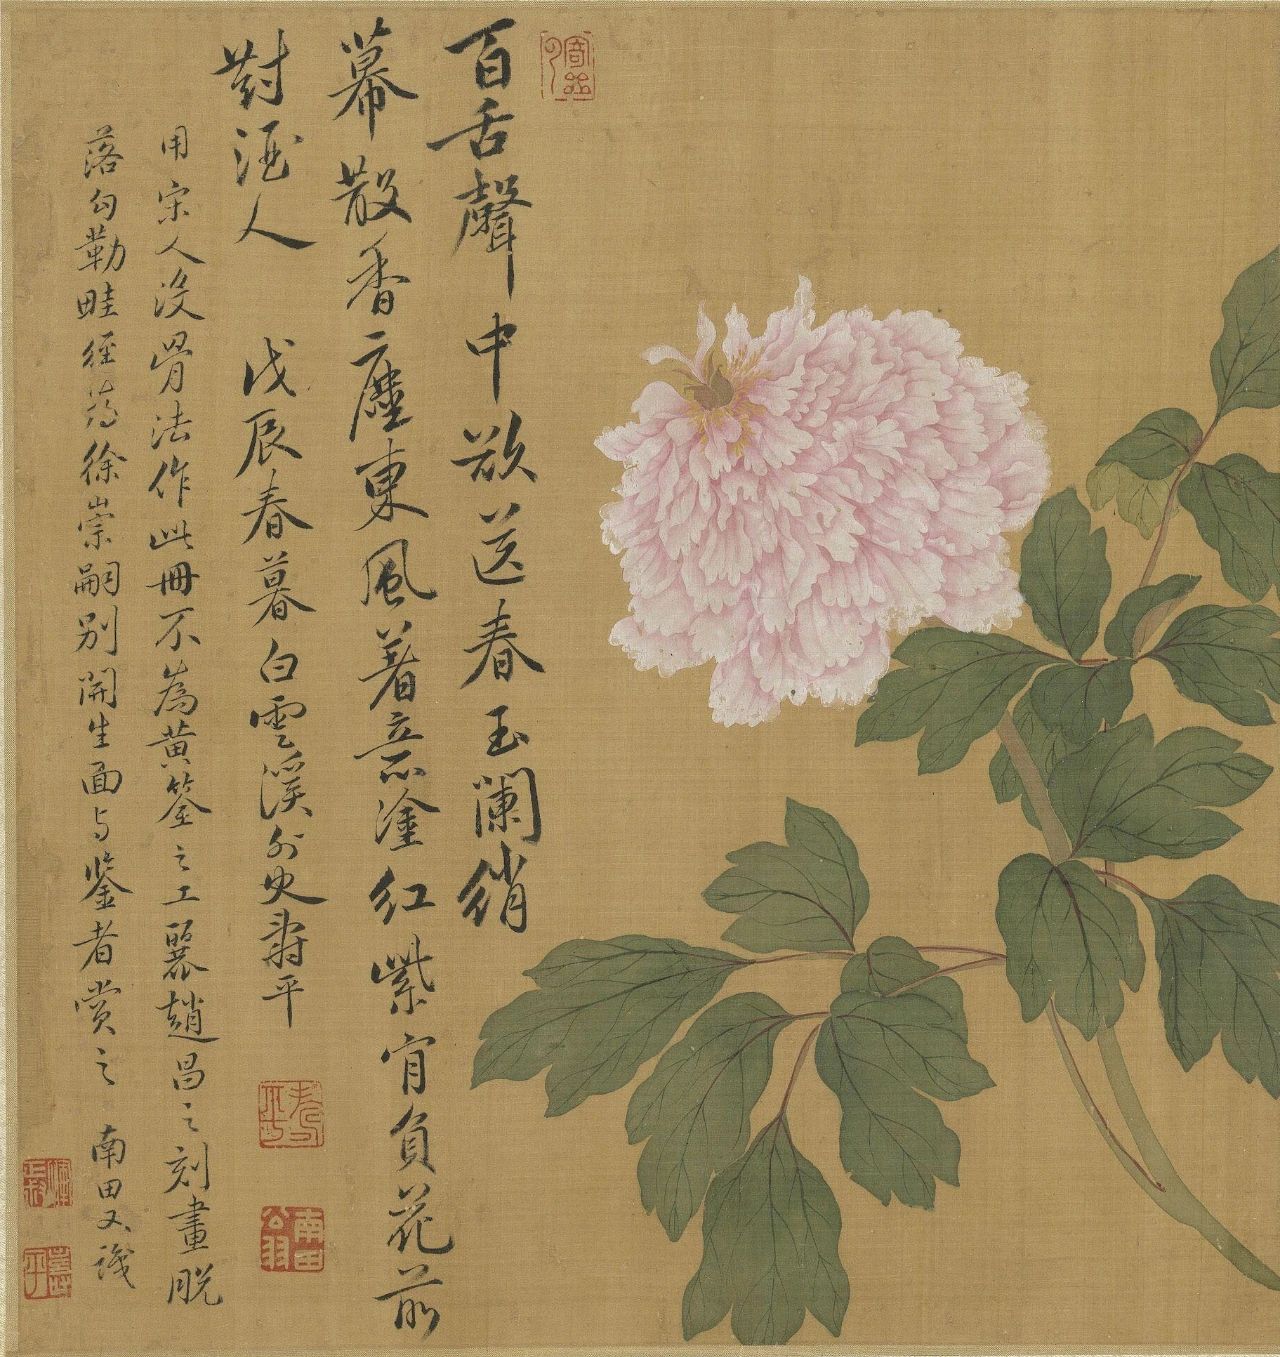 百舌聲中欲送春玉闌綃
幕散香塵東風著意塗紅紫肯負花前
對酒人 戊辰春暮白雲溪外史壽平
用宋人沒骨法作此冊不為黃筌之工麗趙昌之刻畫脫
落勾勒畦徑蕩徐崇嗣別開生面与鑒者賞之 南田又識
壽平
南田
壽平